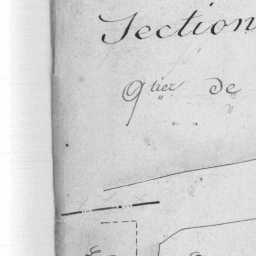 Section
Qtier de